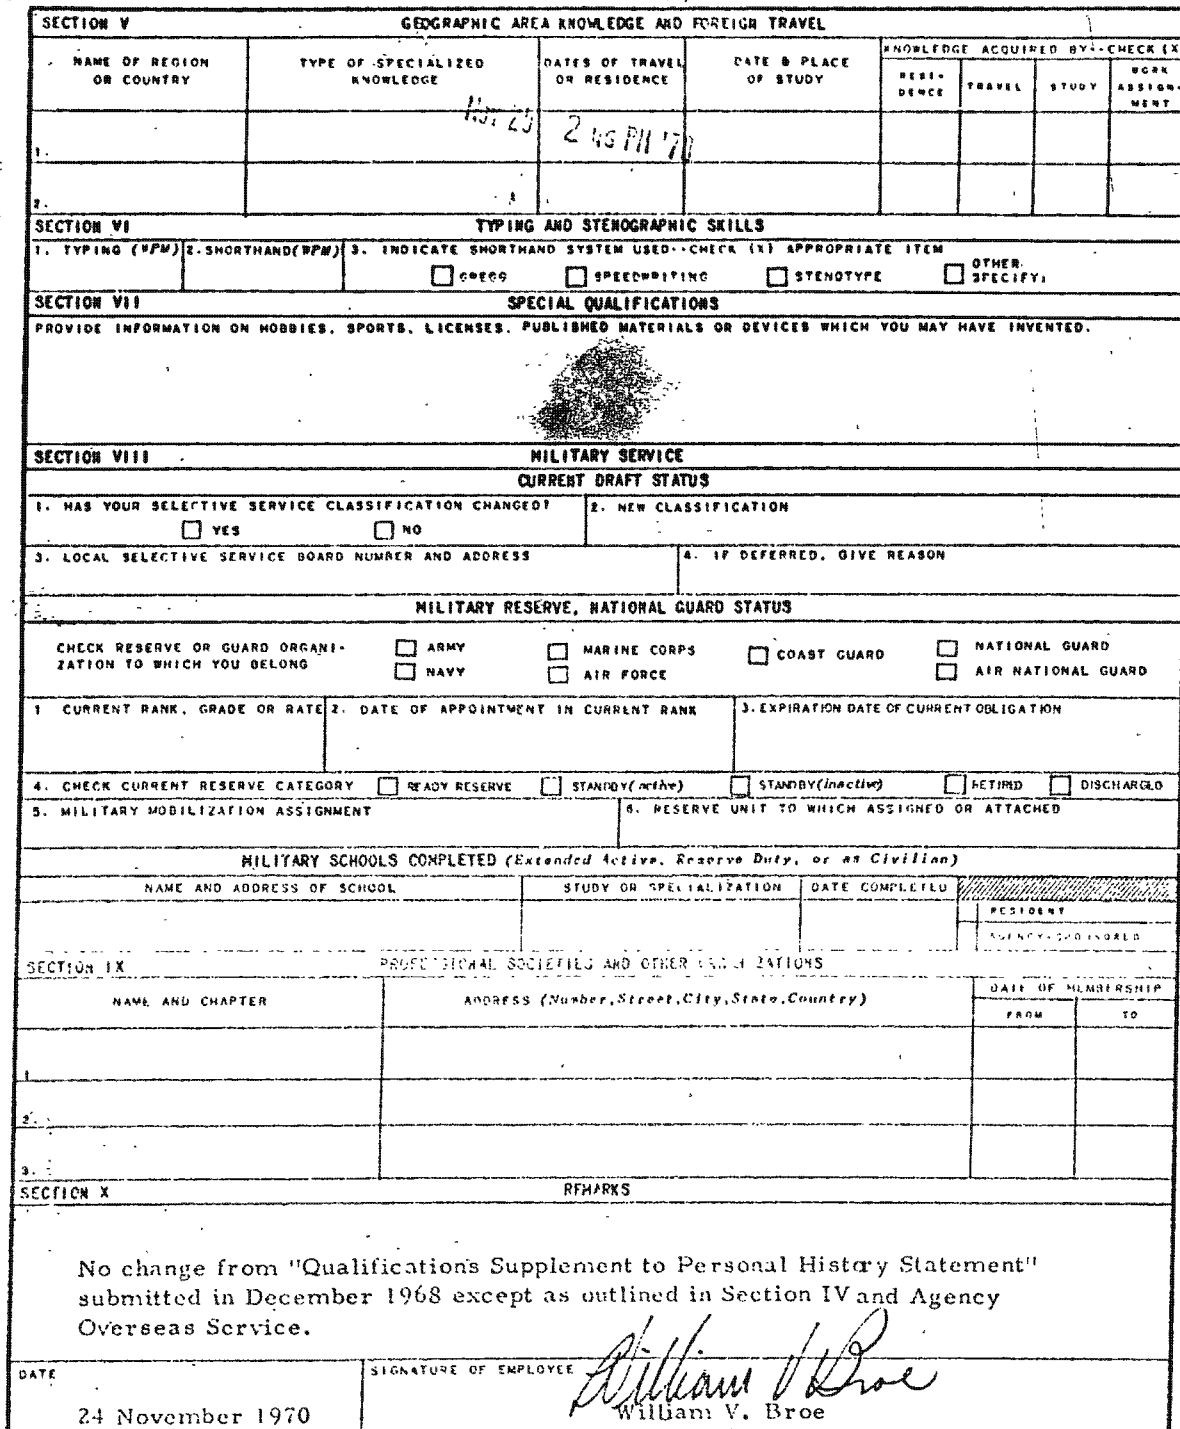 SECTION V GEOGRAPHIC AREA KNOWLEDGE AND FOREIGN TRAVEL
NAME OF REGION OR COUNTRY
TYPE OF SPECIALIZED KNOWLEDGE
DATES OF TRAVEL OR RESIDENCE
DATE & PLACE OF STUDY
KNOWLEDGE ACQUIRED BY--CHECK (X
RESI-DENCE
TRAVEL
STUDY
WORK ASSIGN-MENT
Nov 25 2 46 PM '70
1.
2.
SECTION VI TYPING AND STENOGRAPHIC SKILLS
1. TYPING (WPM) 2. SHORTHAND (WPM) 3. INDICATE SHORTHAND SYSTEM USED--CHECK (X) APPROPRIATE ITEM
GREGG SPEEDWRITING STENOTYPE OTHER SPECIFY:
SECTION VII SPECIAL QUALIFICATIONS
PROVIDE INFORMATION ON HOBBIES, SPORTS, LICENSES, PUBLISHED MATERIALS OR DEVICES WHICH YOU MAY HAVE INVENTED.
SECTION VIII MILITARY SERVICE
CURRENT DRAFT STATUS
1. HAS YOUR SELECTIVE SERVICE CLASSIFICATION CHANGED? 2. NEW CLASSIFICATION
YES NO
3. LOCAL SELECTIVE SERVICE BOARD NUMBER AND ADDRESS 4. IF DEFERRED, GIVE REASON
MILITARY RESERVE, NATIONAL GUARD STATUS
CHECK RESERVE OR GUARD ORGANI-
ZATION TO WHICH YOU BELONG
ARMY MARINE CORPS COAST GUARD NATIONAL GUARD
NAVY AIR FORCE AIR NATIONAL GUARD
1 CURRENT RANK, GRADE OR RATE 2. DATE OF APPOINTMENT IN CURRENT RANK 3. EXPIRATION DATE OF CURRENT OBLIGATION
4. CHECK CURRENT RESERVE CATEGORY READY RESERVE STANDBY (active) STANDBY (inactive) RETIRED DISCHARGED
5. MILITARY MOBILIZATION ASSIGNMENT 6. RESERVE UNIT TO WHICH ASSIGNED OR ATTACHED
MILITARY SCHOOLS COMPLETED (Extended Active, Reserve Duty, or as Civilian)
NAME AND ADDRESS OF SCHOOL STUDY OR SPECIALIZATION DATE COMPLETED
RESIDENT
AGENCY-SPONSORED
SECTION IX PROFESSIONAL SOCIETIES AND OTHER ORGANIZATIONS
NAME AND CHAPTER ADDRESS (Number, Street, City, State, Country) DATE OF MEMBERSHIP
FROM TO
1
2.
3.
SECTION X REMARKS
No change from "Qualifications Supplement to Personal History Statement"
submitted in December 1968 except as outlined in Section IV and Agency
Overseas Service.
DATE SIGNATURE OF EMPLOYEE William V Broe
24 November 1970 William V. Broe